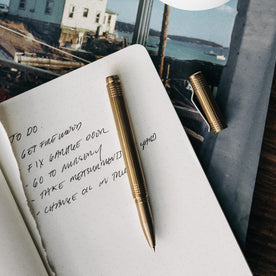 TO DO
GET FIREWOOD
- FIX GARAGE DOOR
- GO TO NURSERY
- TAKE MEASUREMENTS YARD
- CHANGE OIL IN